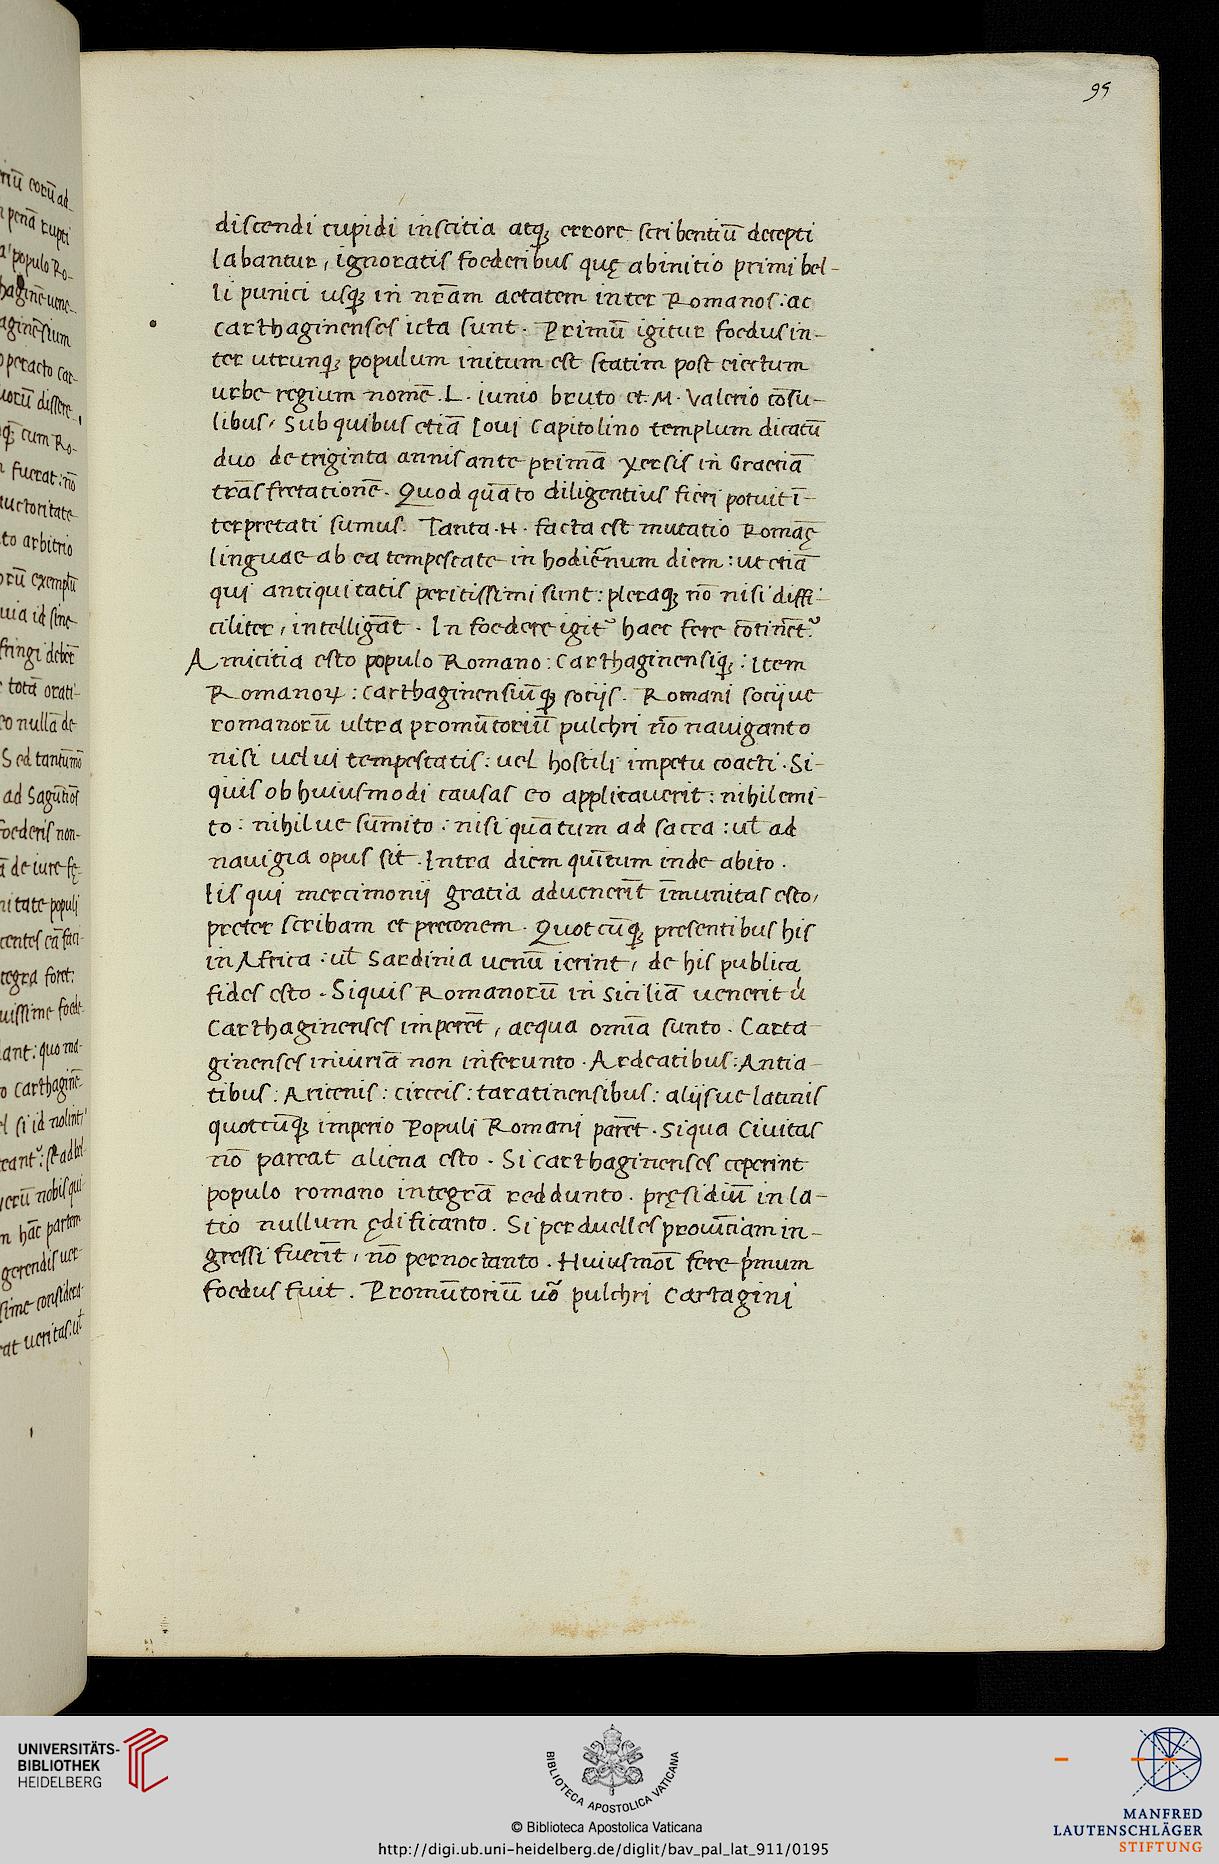 95
discendi cupidi inscitia atq; errore scribentiū decepti
labantur, ignoratis foederibus quę abinitio primi bel-
li punici usq; in nr̄am aetatem inter Romanos: ac
carthaginenses icta sunt. Primū igitur foedus in-
ter utrunq; populum initum est statim post eiectum
urbe regium nomē. L. iunio bruto et. M. Valerio cōsu-
libus, Sub quibus etiā Ioui Capitolino templum dicatū
duo de triginta annis ante primā xersis in Graeciā
trāsfretationē. Quod quāto diligentius fieri potuit ī-
terpretati sumus. Tanta .N. facta est mutatio Romāę
linguae ab ea tempestate in hodiērnum diem: ut etiā
qui antiquitatis peritissimi sunt: pleraq; nō nisi diffi-
ciliter, intelligāt. In foedere igit᷑ haec fere cōtinēt᷑
Amicitia esto populo Romano: Carthaginensiq;: Item
Romanoꝝ: carthaginensiūq; socijs. Romani socijue
romanorū ultra promūtoriū pulchri nō nauiganto
nisi uel ui tempestatis: uel hostili impetu coacti. Si-
quis ob huiusmodi causas eo applicauerit: nihil emi-
to: nihilue sūmito: nisi quātum ad sacra: ul̄ ad
nauigia opus sit. Intra diem quītum inde abito.
Iis qui mercimonij gratia aduenerīt īmunitas esto,
preter scribam et preconem. Quotcūq; presentibus his
in Africa: ul̄ Sardinia uenū ierint, de his publica
fides esto. Siquis Romanorū in siciliā uenerit ù
Carthaginenses imperēt, aequa omīa sunto. Carta
ginenses iniuriā non inferunto. Ardeatibus: Antia-
tibus: Aricenis: circeis: taratinensibus: alijsue latinis
quotcūq; imperio Populi Romani parēt. Siqua Ciuitas
nō pareat aliena esto. Si carthaginenses ceperint
populo romano integrā reddunto. pręsidiū in la-
tio nullum ędificanto. Si perduelles prouītiam in-
gressi fuerīt, nō pernoctanto. Huiusmōi fere p̍mum
foedus fuit. Promūtoriū uō pulchri Cartagini
UNIVERSITÄTS-
BIBLIOTHEK
HEIDELBERG
BIBLIOTECA APOSTOLICA VATICANA
© Biblioteca Apostolica Vaticana
http://digi.ub.uni-heidelberg.de/diglit/bav_pal_lat_911/0195
MANFRED
LAUTENSCHLÄGER
STIFTUNG